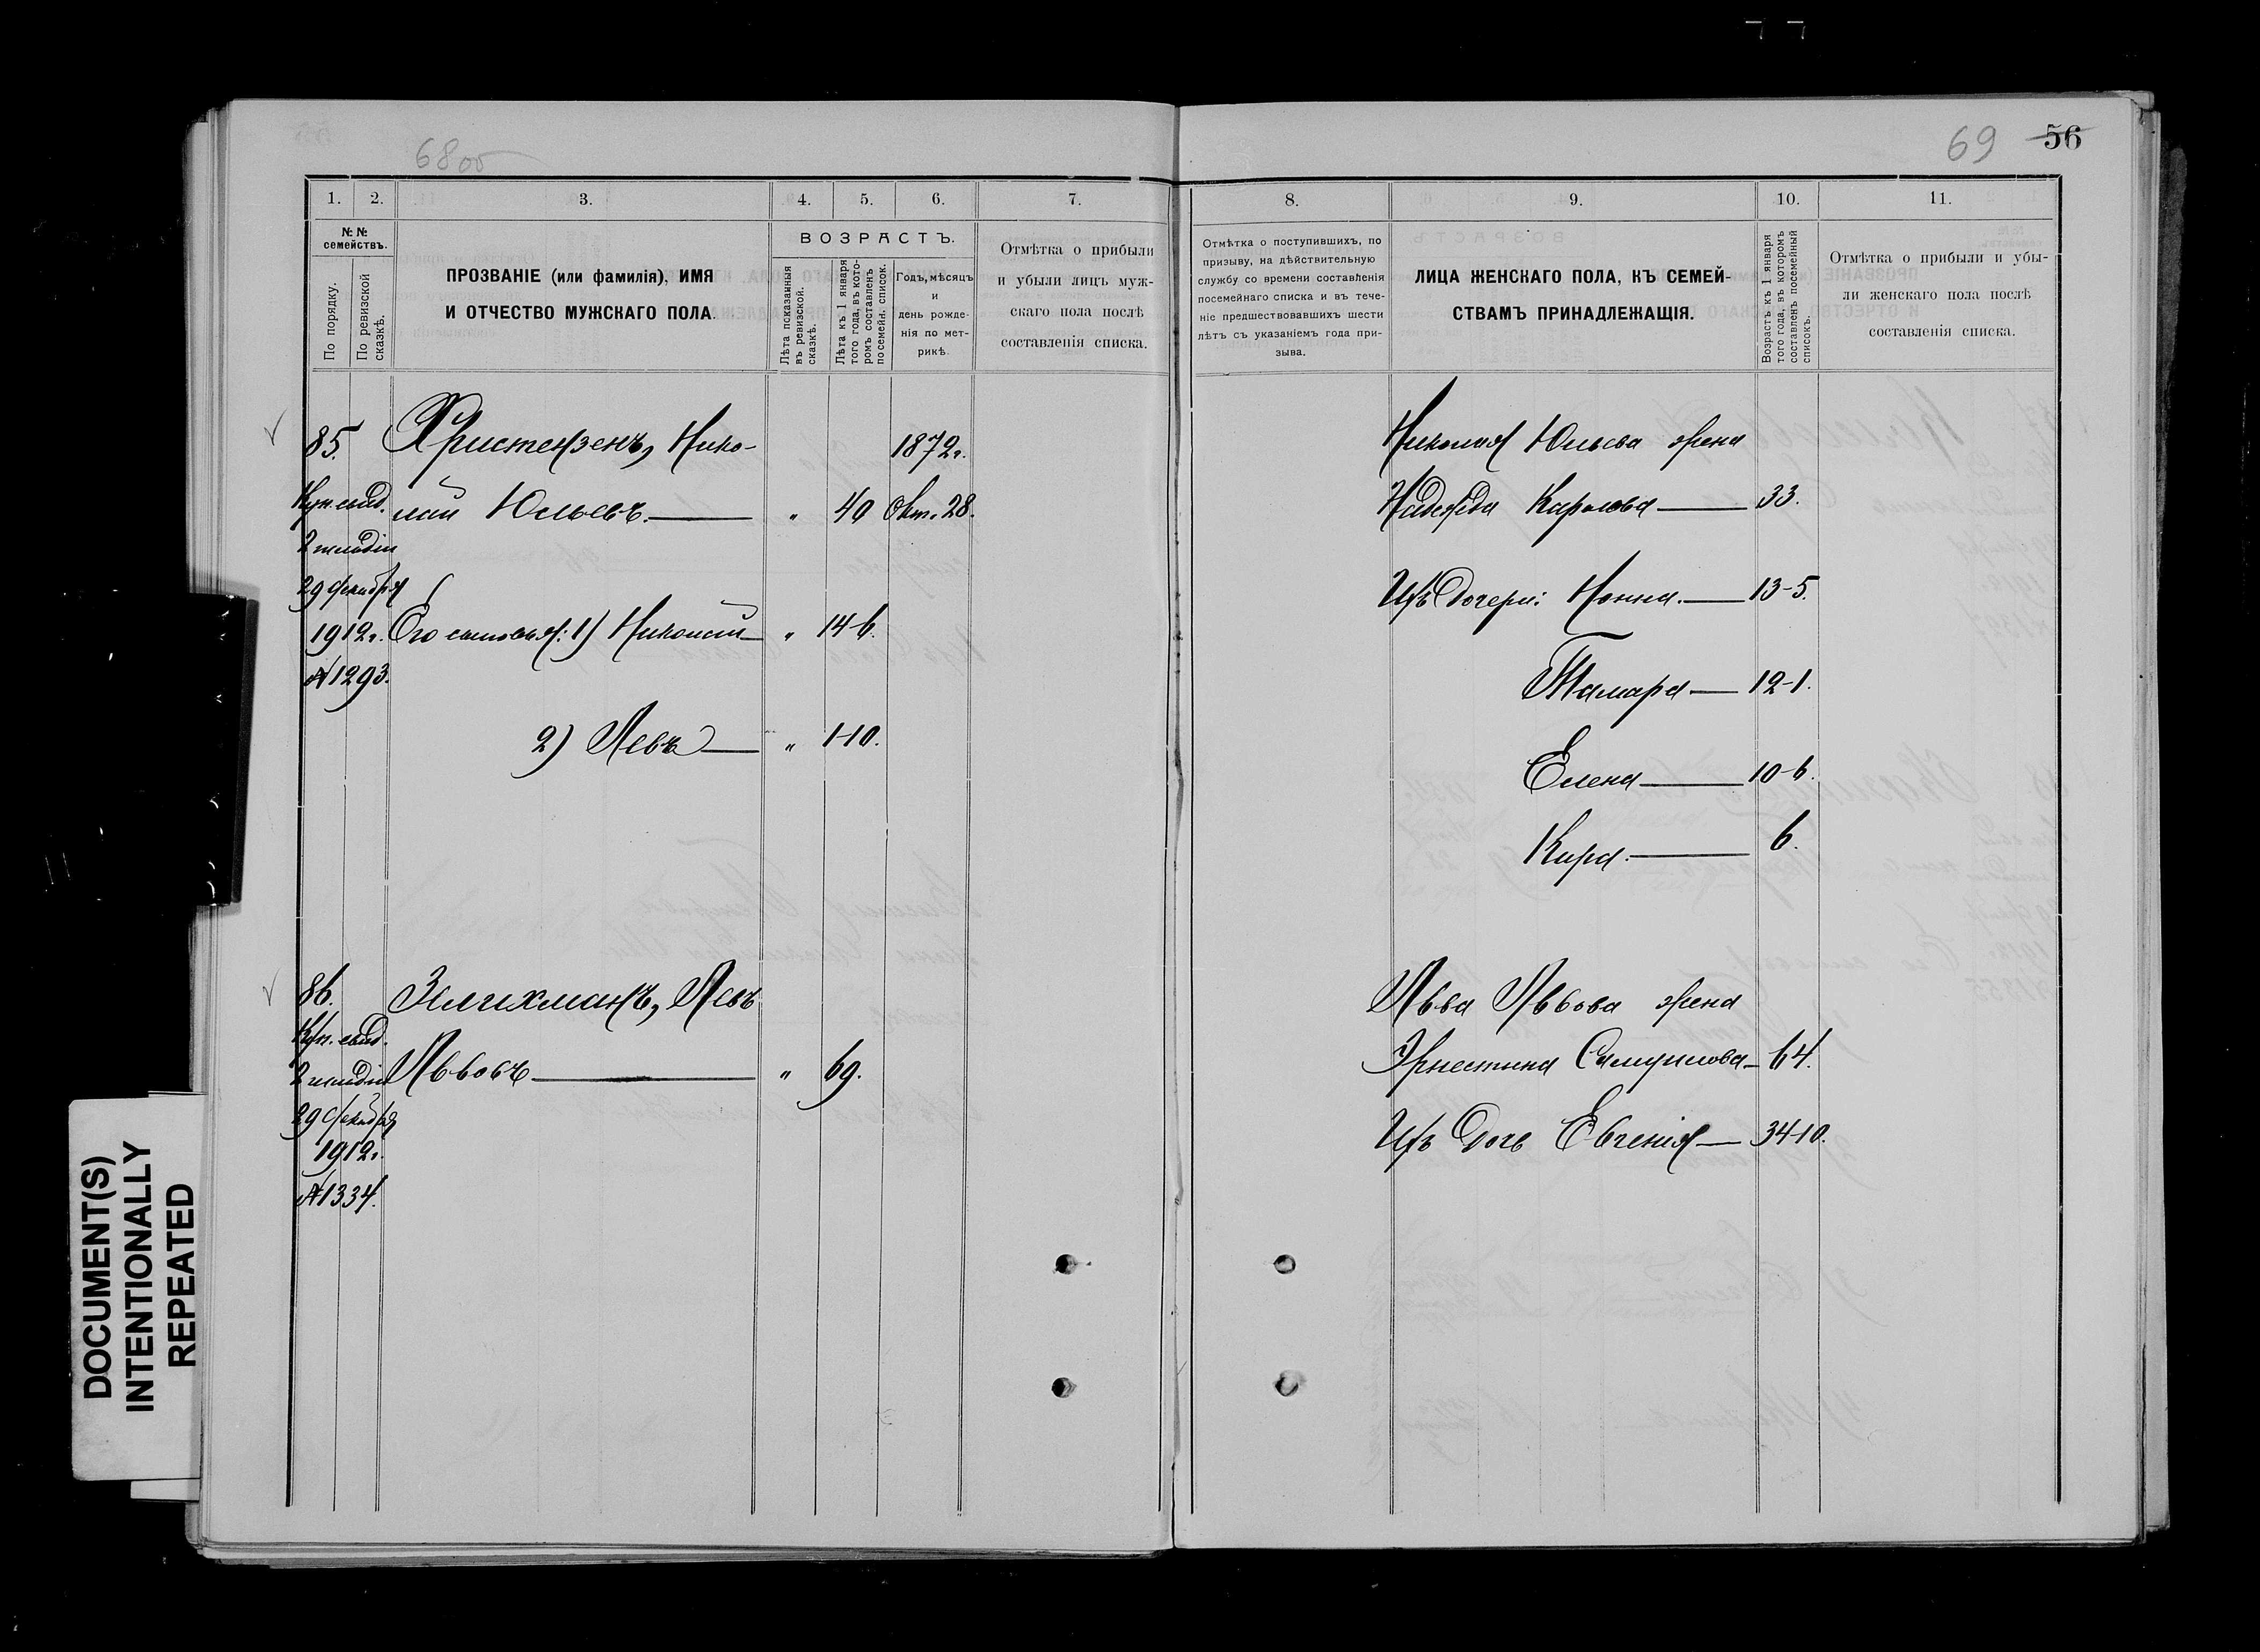 68 об
1. 2. 3. 4. 5. 6. 7.
№ №
семействъ.
По порядку.
По ревизской
сказкѣ.
ПРОЗВАНІЕ (или фамилія), ИМЯ
И ОТЧЕСТВО МУЖСКАГО ПОЛА.
ВОЗРАСТЪ.
Лѣта показанныя
въ ревизской.
сказкѣ.
Лѣта къ 1 января
того года, въ кото-
ромъ составленъ
посемейн. списокъ.
Годъ, мѣсяцъ
и
день рожде-
нія по мет-
рикѣ.
Отмѣтка о прибыли
и убыли лицъ муж-
скаго пола послѣ
составленія списка.
85. Христензенъ, Нико- 1872г.
Куп. свид. лай Юльевъ. " 40 Окт. 28.
2 гильдіи
29 декабря
1912г. Его сыновья: 1) Николай " 14-6.
№ 1293.
2) Левъ " 1-10.
86. Зелихманъ, Левъ
Куп. свид.
2 гильдіи Львовъ " 69.
29 декабря
1912г.
№ 1334.
69 56
8. 9. 10. 11.
Отмѣтка о поступившихъ, по
призыву, на дѣйствительную
службу со времени составленія
посемейнаго списка и въ тече-
ніе предшествовавшихъ шести
лѣтъ съ указаніемъ года при-
зыва.
ЛИЦА ЖЕНСКАГО ПОЛА, КЪ СЕМЕЙ-
СТВАМЪ ПРИНАДЛЕЖАЩІЯ.
Возрастъ къ 1 января
того года, въ которомъ
составленъ посемейный
списокъ.
Отмѣтка о прибыли и убы-
ли женскаго пола послѣ
составленія списка.
Николая Юльева жена
Надежда Карлова 33.
Ихъ дочери: Нонна. 13-5.
Тамара 12-1.
Елена 10-6.
Кира. 6.
Льва Львова жена
Эрнестина Самуилова 64.
Ихъ дочь Евгенія 34-10.
DOCUMENT(S)
INTENTIONALLY
REPEATED